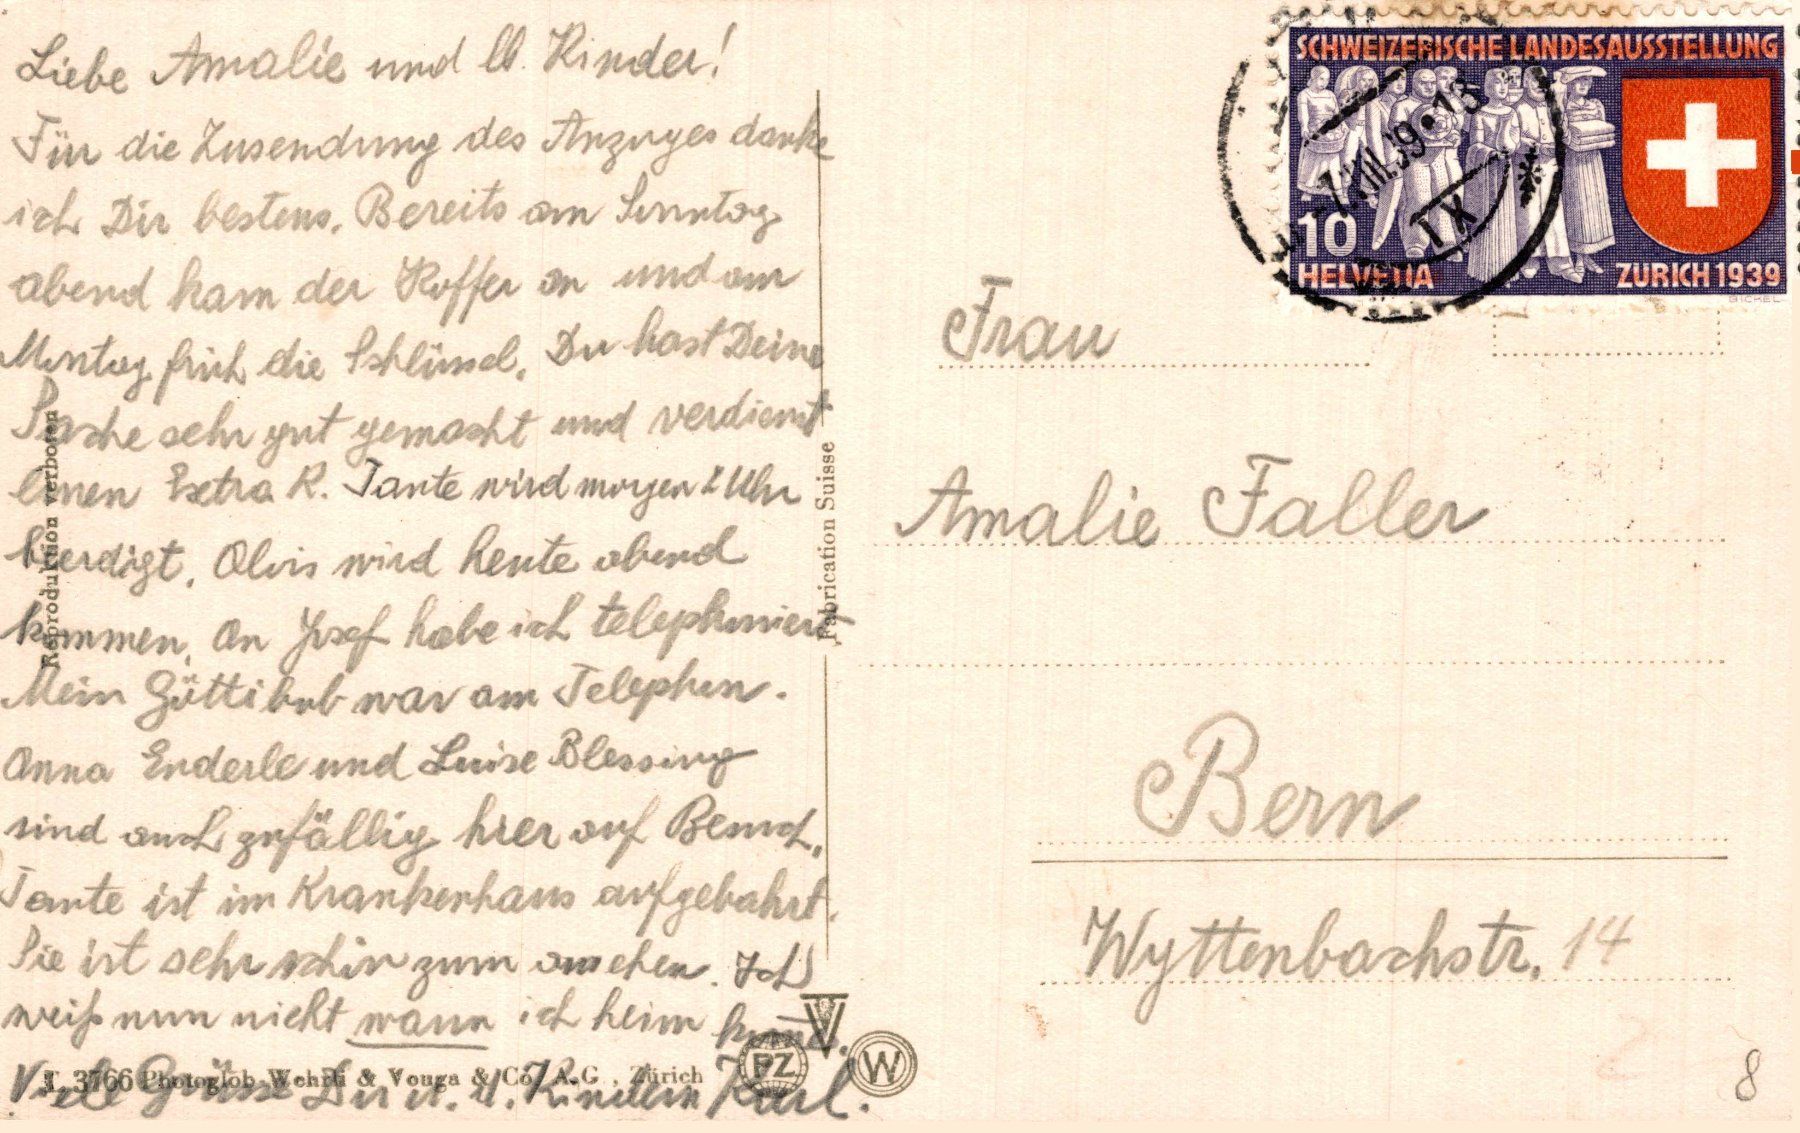 Liebe Amalie und lb. Kinder!
Für die Zusendung des Anzuges danke
ich Dir bestens. Bereits am Sonntag
abend kam der Koffer an und am
Montag früh die Schlüssel. Du hast Deine
Sache sehr gut gemacht und verdienst
einen Extra K. Tante wird morgen 2 Uhr
beerdigt. Alois wird heute abend
kommen. An Josef habe ich telephoniert
Mein Göttibub war am Telephon.
Anna Enderle und Luise Blessing
sind auch zufällig hier auf Besuch.
Tante ist im Krankenhaus aufgebahrt.
Sie ist sehr schön zum ansehen. Ich
weiß nun nicht wann ich heim
Viele Grüsse Dir u. d. Kindern Karl.
Reproduction verboten
Fabrication Suisse
3766 Photoglob-Wehrli & Vouga & Co. A.G., Zürich
PZ
W
SCHWEIZERISCHE LANDESAUSSTELLUNG
10
HELVETIA
ZÜRICH 1939
BICKEL
IX
Frau
Amalie Faller
Bern
Wyttenbachstr. 14
8